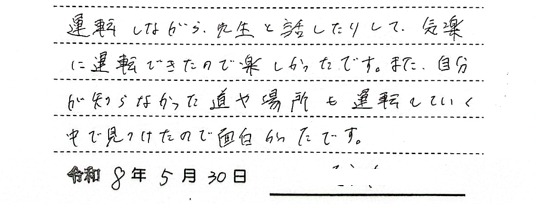 運転しながら、先生と話したりして、気楽
に運転できたので楽しかったです。また、自分
が知らなかった道や場所も運転していく
中で見つけたので面白かったです。
令和 8年 5月 30日